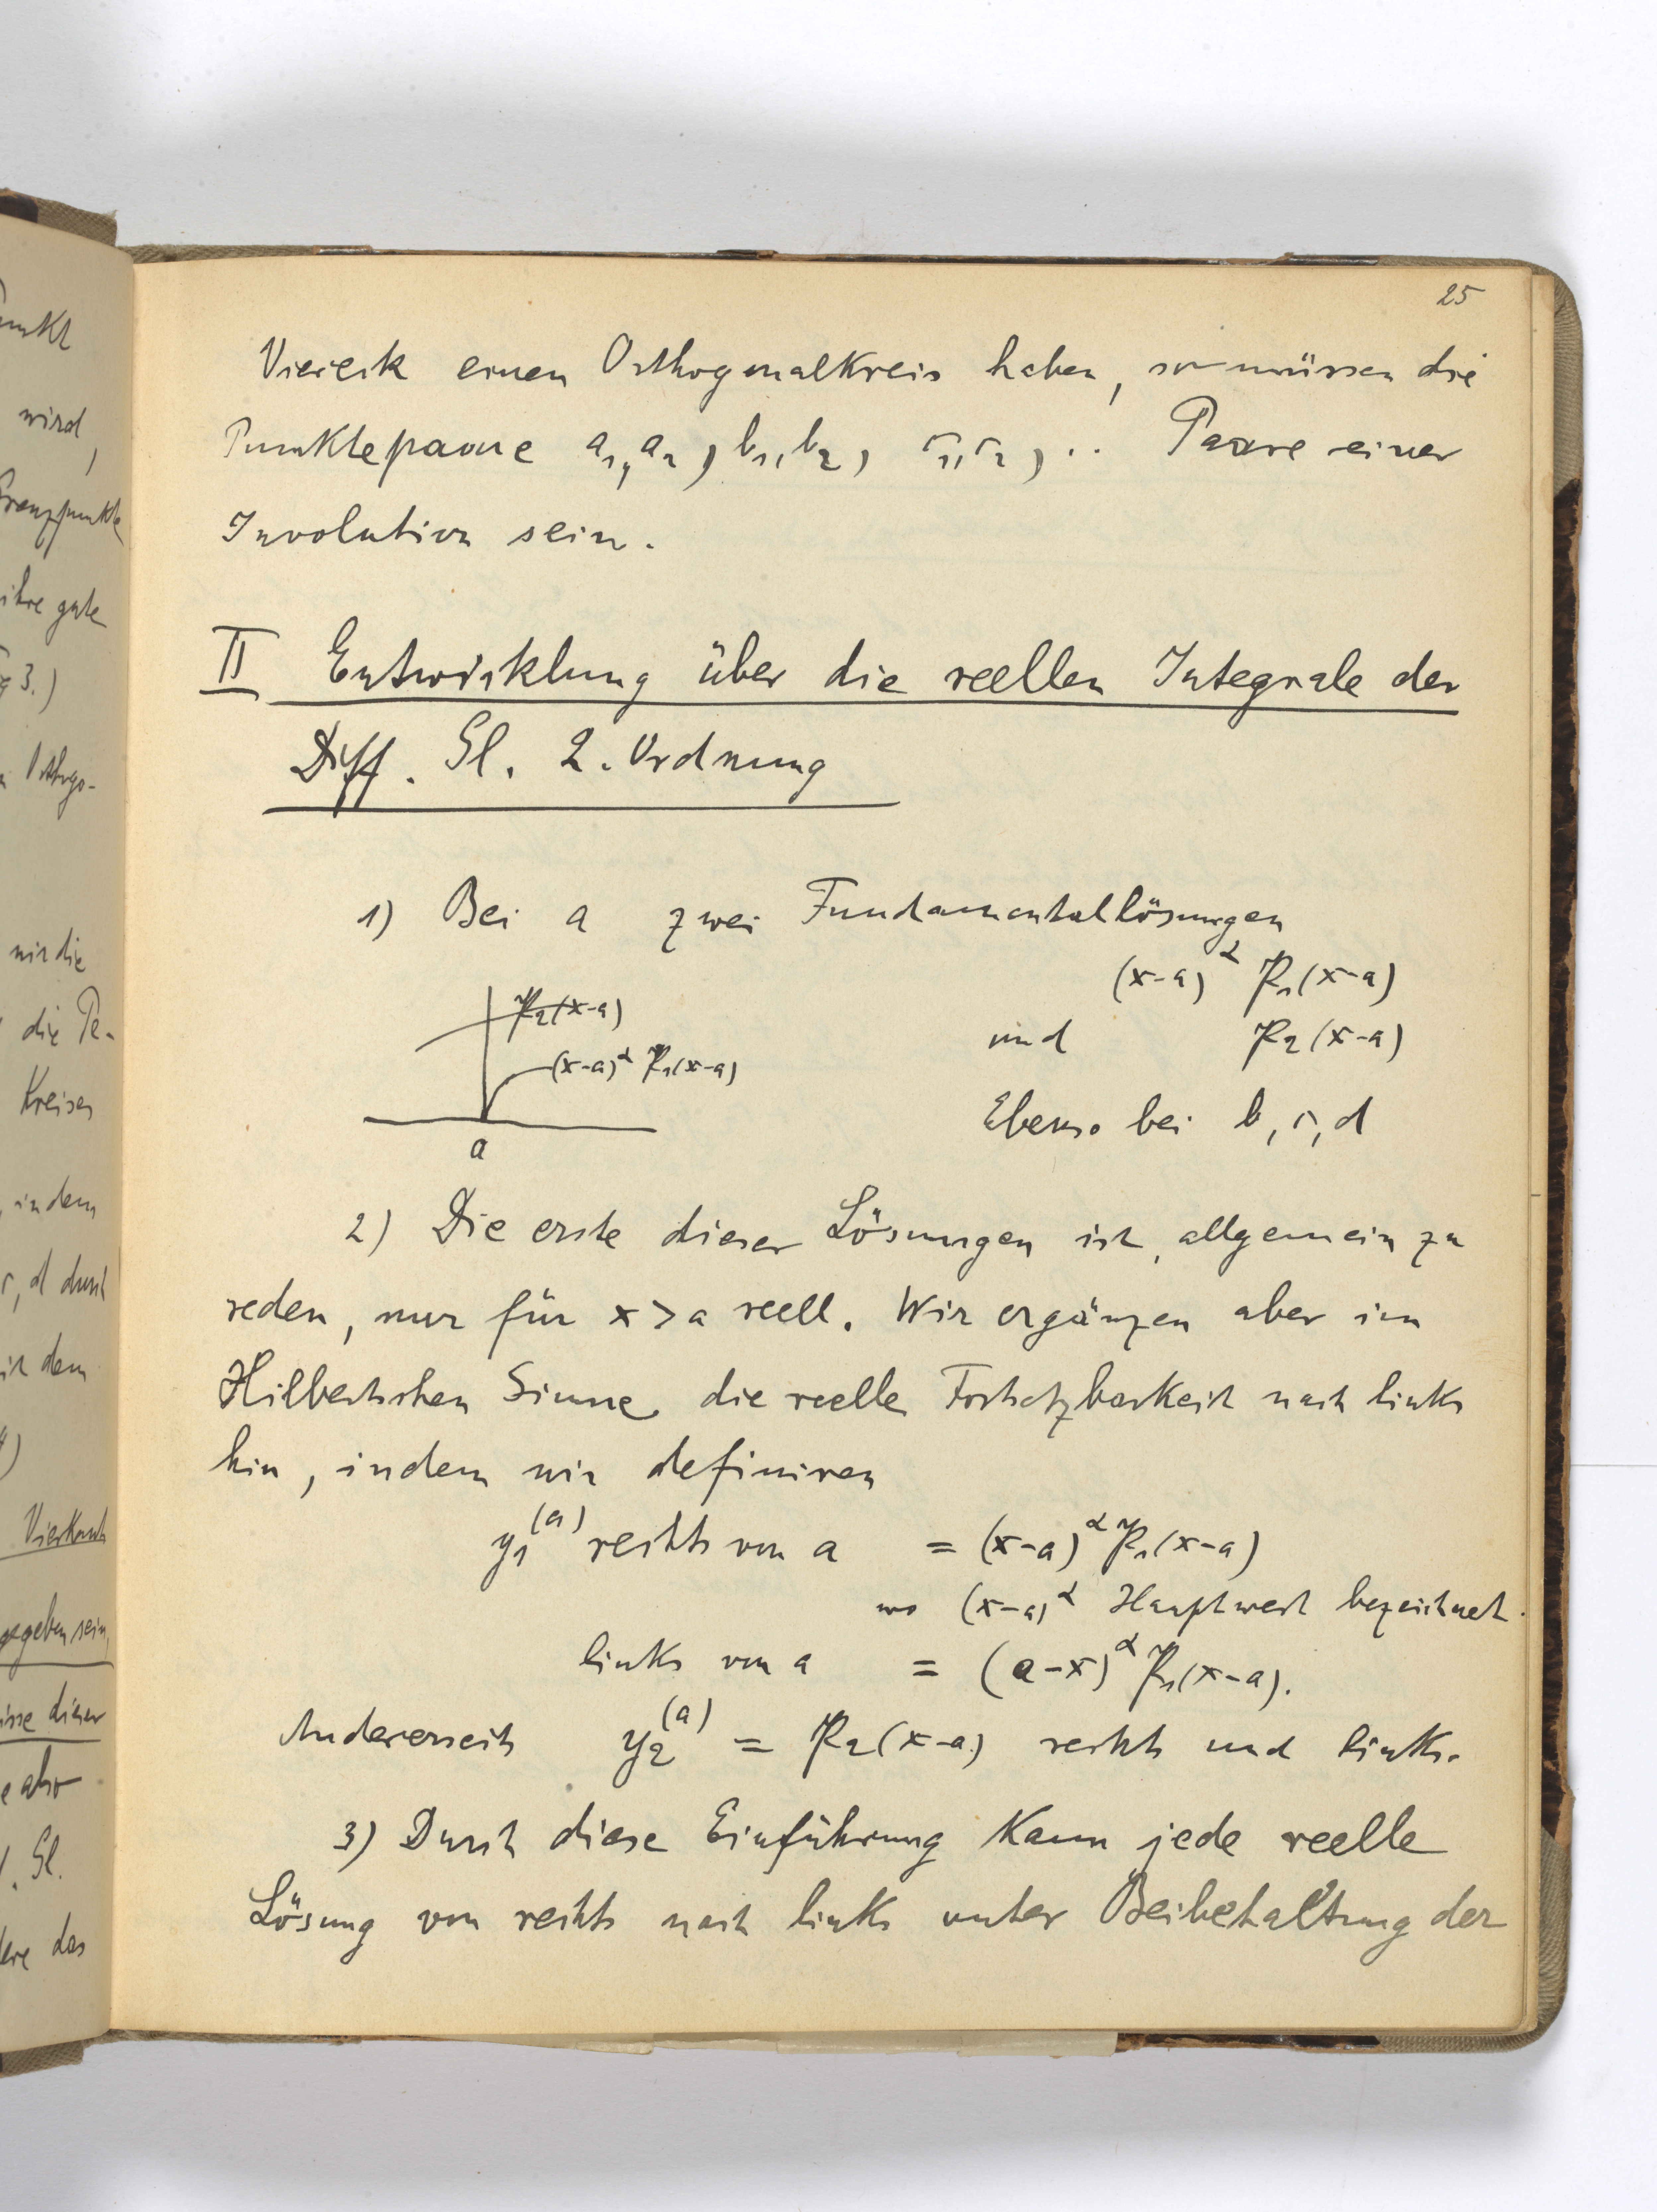 25
Viereck einen Orthogonalkreis haben, so müssen die
Punktepaare a₁, a₂, b₁, b₂, c₁, c₂, .. Paare einer
Involution sein.
II Entwicklung über die reellen Integrale der
Diff. Gl. 2. Ordnung
1) Bei a zwei Fundamentallösungen
(x-a)^α P₁(x-a)
und P₂(x-a)
Ebenso bei b, c, d
P₂(x-a)
(x-a)^α P₁(x-a)
a
2) Die erste dieser Lösungen ist, allgemein zu
reden, nur für x > a reell. Wir ergänzen aber im
Hilbertschen Sinne die reelle Fortsetzbarkeit nach links
hin, indem wir definiren
y₁^(a) rechts von a = (x-a)^α P₁(x-a)
wo (x-a)^α Hauptwert bezeichnet.
links von a = (a-x)^α P₁(x-a).
Andererseits y₂^(a) = P₂(x-a) rechts und links.
3) Durch diese Einführung kann jede reelle
Lösung von rechts nach links unter Beibehaltung der
unkt
wird,
Grenzpunkte
ihre gute
3.)
Orthogo-
wir die
die Pe-
Kreises
, indem
c, d durch
dem
Vierkant
gegeben sein,
dieser
also
. Gl.
das